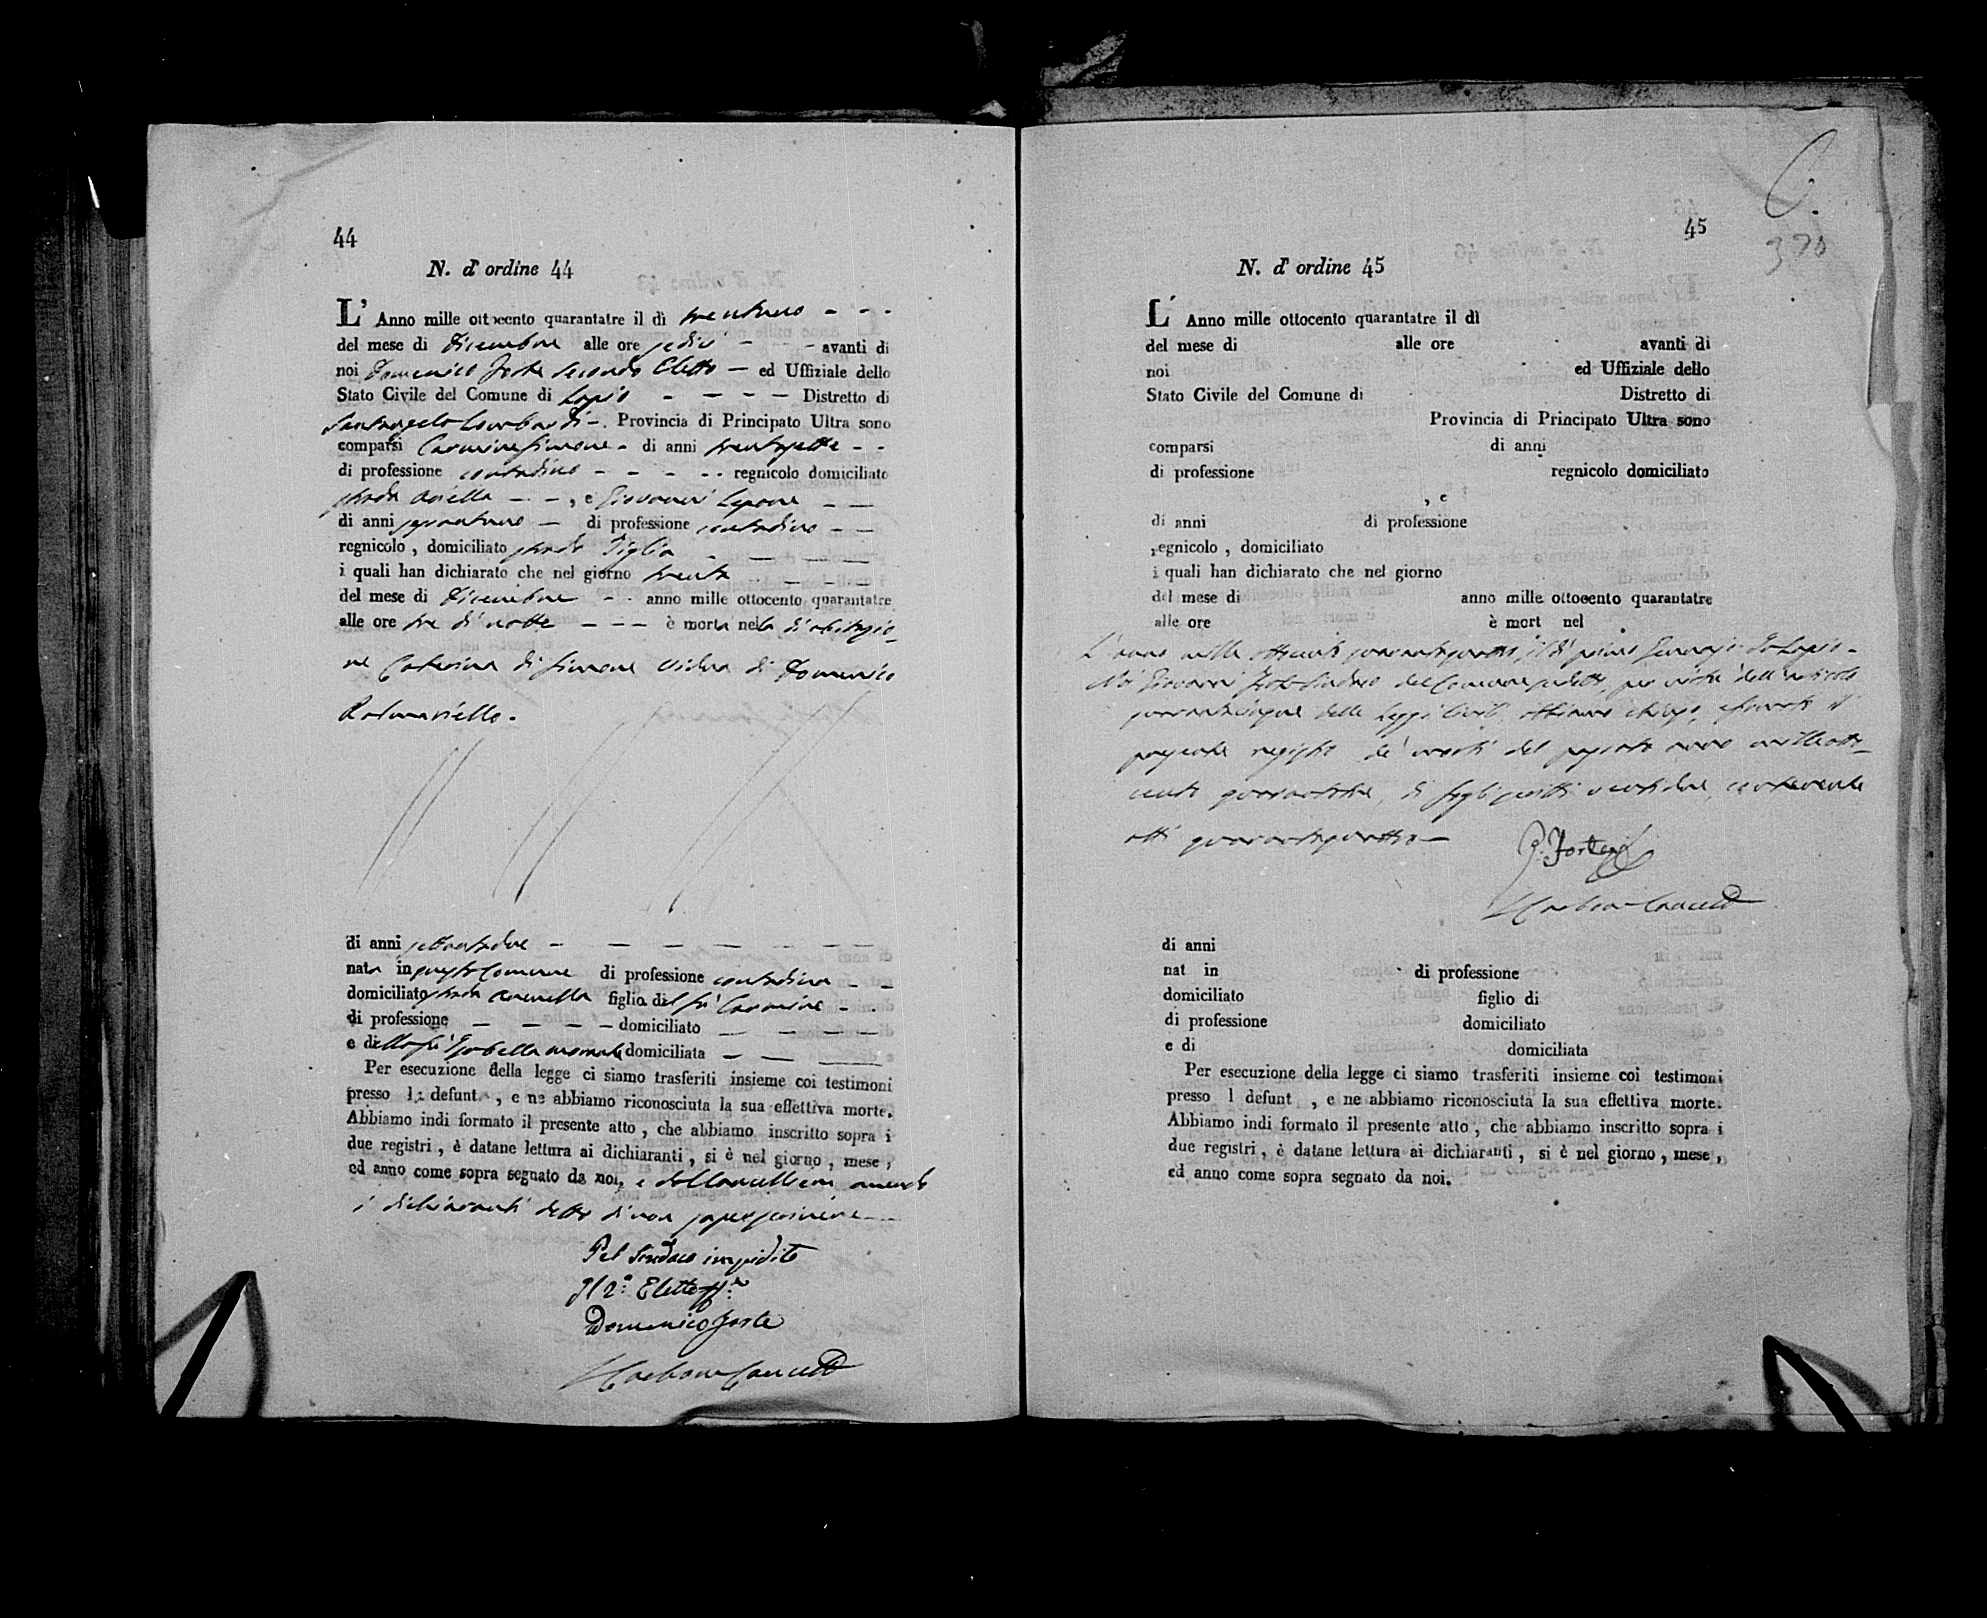 44
N. d' ordine 44
L' Anno mille ottocento quarantatre il dì trentuno - - -
del mese di Dicembre alle ore sedici - - - avanti di
noi Domenico Forte Secondo Eletto - ed Uffiziale dello
Stato Civile del Comune di Lapio - - - - Distretto di
Santangelo Lombardi -. Provincia di Principato Ultra sono
comparsi Carmine Simone - di anni trentasette - -
di professione contadino - - - - - regnicolo domiciliato
strada - - , e Giovanni Lepore - -
di anni - di professione contadino - -
regnicolo , domiciliato strada Tiglio - - - -
i quali han dichiarato che nel giorno trenta - - -
del mese di Dicembre - - anno mille ottocento quarantatre
alle ore tre di notte - - - è morta nella di abitazio-
ne Caterina di Simone vidua di Domenico
Romaniello.
di anni settantadue - - - - - - -
nata in questo Comune di professione contadina - -
domiciliato strada figlia del fù Carmine - -
di professione - - - - domiciliato - - - -
e della fù Isabella domiciliata - - -
Per esecuzione della legge ci siamo trasferiti insieme coi testimoni
presso la defunta , e ne abbiamo riconosciuta la sua effettiva morte.
Abbiamo indi formato il presente atto , che abbiamo inscritto sopra i
due registri , è datane lettura ai dichiaranti , si è nel giorno , mese ,
ed anno come sopra segnato da noi, e dal Cancelliere avendo
i dichiaranti detto di non saper scrivere - -
Pel Sindaco impedito
Il 2.° Eletto ff.
Domenico Forte
45
370
N. d' ordine 45
L' Anno mille ottocento quarantatre il dì
del mese di alle ore avanti di
noi ed Uffiziale dello
Stato Civile del Comune di Distretto di
Provincia di Principato Ultra sono
comparsi di anni
di professione regnicolo domiciliato
, e
di anni di professione
regnicolo , domiciliato
i quali han dichiarato che nel giorno
del mese di anno mille ottocento quarantatre
alle ore è mort nel
L'anno mille ottocento quarantaquattro, il dì primo Gennajo in Lapio -
Noi Giovanni Forte Sindaco del Comune sudetto, per virtù dell'articolo
quarantacinque delle Leggi Civili, abbiamo chiuso, e firmato il
presente registro de' morti del passato anno milleotto-
cento quarantatre, di fogli scritti ventidue, contenente
atti quarantaquattro -
G. Forte
di anni
nat in di professione
domiciliato figlio di
di professione domiciliato
e di domiciliata
Per esecuzione della legge ci siamo trasferiti insieme coi testimoni
presso l defunt , e ne abbiamo riconosciuta la sua effettiva morte.
Abbiamo indi formato il presente atto , che abbiamo inscritto sopra i
due registri , è datane lettura ai dichiaranti , si è nel giorno , mese ,
ed anno come sopra segnato da noi.